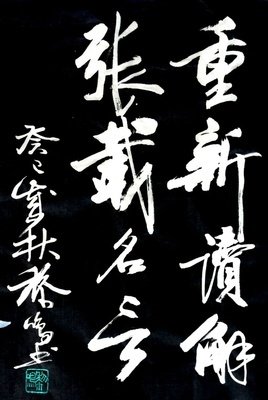 重新讀解
張載名言
癸巳歲秋